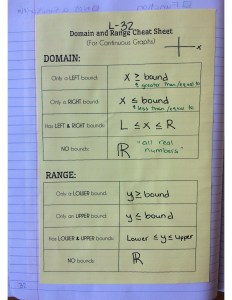 L-32
Domain and Range Cheat Sheet
(For Continuous Graphs)
DOMAIN:
Only a LEFT bound: X ≥ bound
greater than/equal to
Only a RIGHT bound: X ≤ bound
less than/equal to
Has LEFT & RIGHT bounds: L ≤ X ≤ R
NO bounds: ℝ "all real numbers"
RANGE:
Only a LOWER bound: y ≥ bound
Only an UPPER bound: y ≤ bound
Has LOWER & UPPER bounds: Lower ≤ y ≤ Upper
NO bounds: ℝ